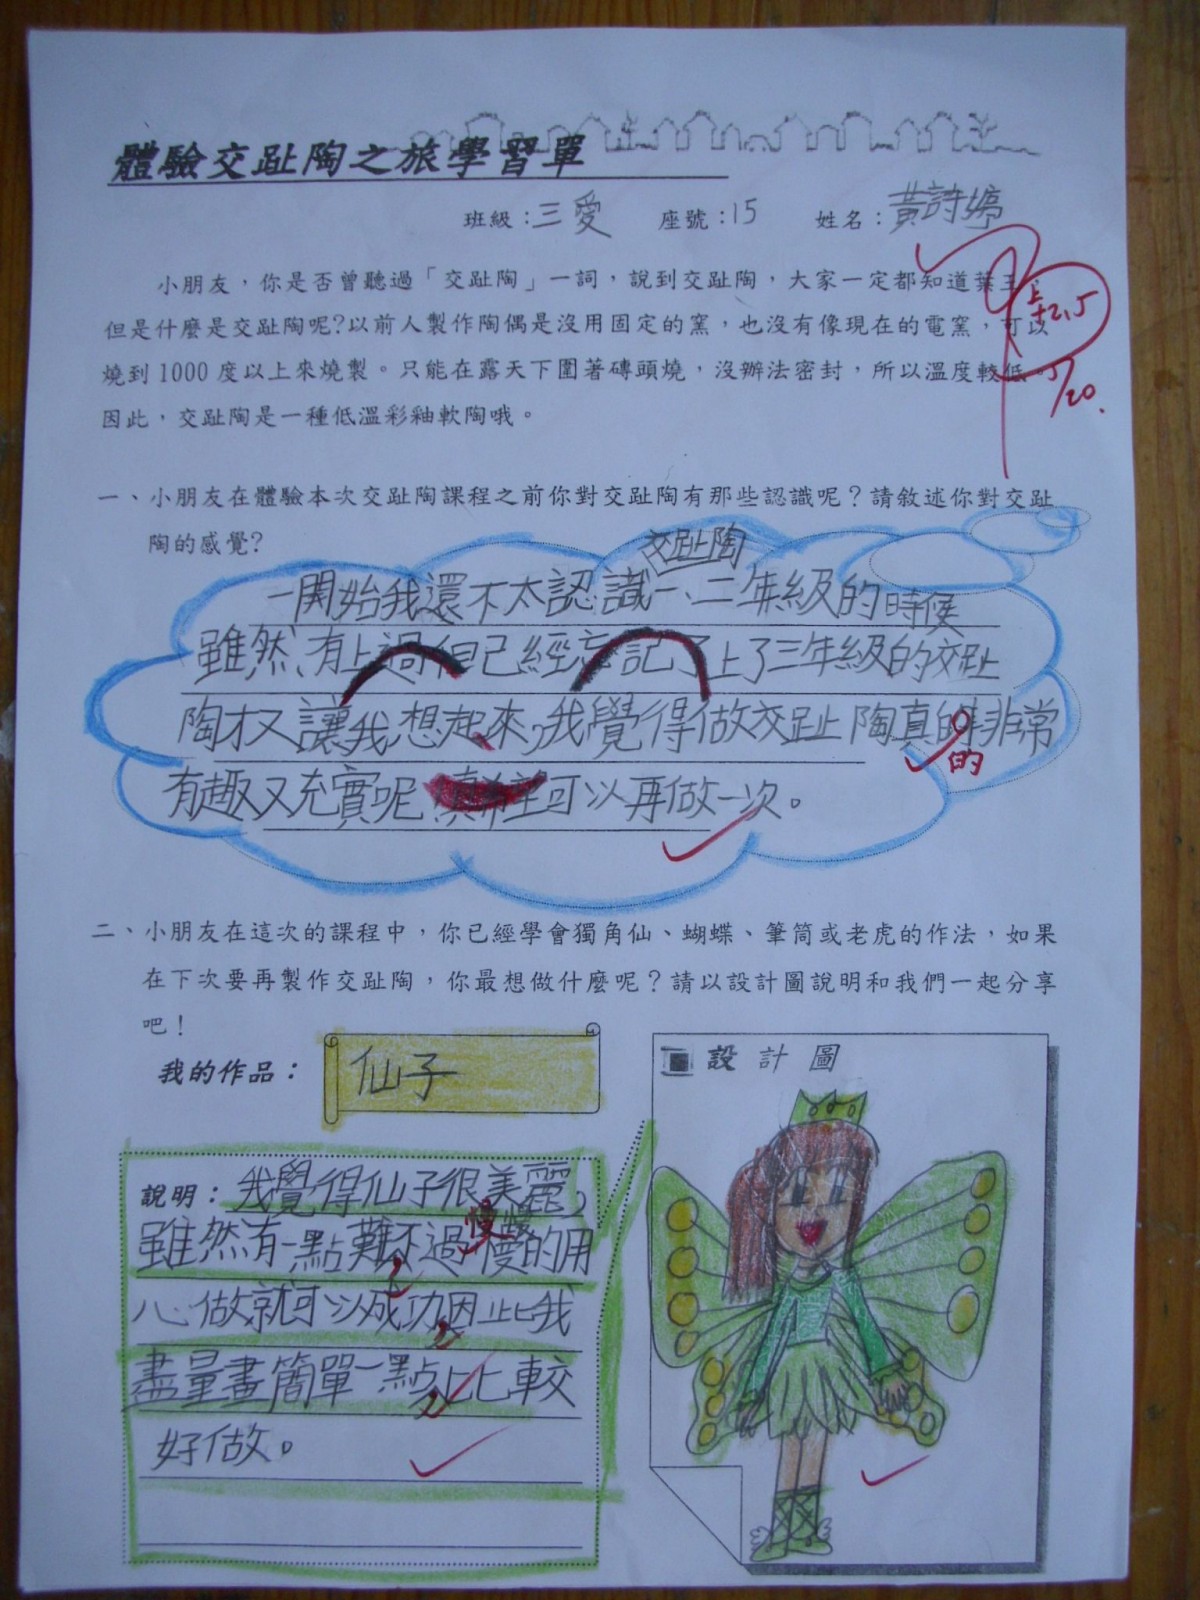 體驗交趾陶之旅學習單
班級：三愛 座號：15 姓名：黃詩婷
小朋友，你是否曾聽過「交趾陶」一詞，說到交趾陶，大家一定都知道葉王
但是什麼是交趾陶呢?以前人製作陶偶是沒用固定的窯，也沒有像現在的電窯，可以
燒到1000度以上來燒製。只能在露天下圍著磚頭燒，沒辦法密封，所以溫度較低。
5/20.
因此，交趾陶是一種低溫彩釉軟陶哦。
一、小朋友在體驗本次交趾陶課程之前你對交趾陶有那些認識呢？請敘述你對交趾
陶的感覺?
交趾陶
一開始我還不太認識一、二年級的時候
雖然有上過但已經忘記了上了三年級的交趾
陶才又讓我想起來，我覺得做交趾陶真的非常
的
有趣又充實呢真希望可以再做一次。
二、小朋友在這次的課程中，你已經學會獨角仙、蝴蝶、筆筒或老虎的作法，如果
在下次要再製作交趾陶，你最想做什麼呢？請以設計圖說明和我們一起分享
吧！
我的作品： 仙子
設計圖
說明：我覺得仙子很美麗，
雖然有一點難不過慢慢的用
心做就可以成功因此我
盡量畫簡單一點比較
好做。